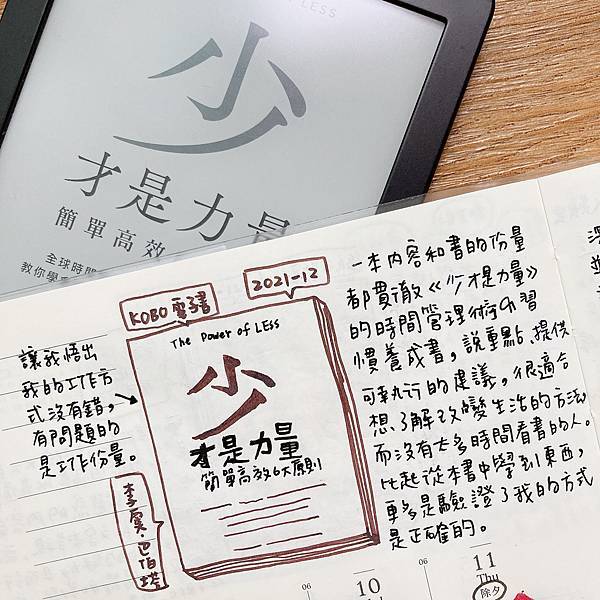 OF LESS
少
才是力量
簡單高效
全球時間
教你學
KOBO 電子書
2021-12
The Power of LEss
少
才是力量
簡單高效6大原則
讓我悟出
我的工作方
式沒有錯,
有問題的
是工作份量。
李奧·巴伯塔
一本內容和書的份量
都貫徹《少才是力量》
的時間管理術的習
慣養成書,說重點、提供
可執行的建議,很適合
想了解改變生活的方法
而沒有太多時間看書的人。
比起從本書中學到東西,
更多是驗證了我的方式
是正確的。
06
10
06
11
Thu
除夕